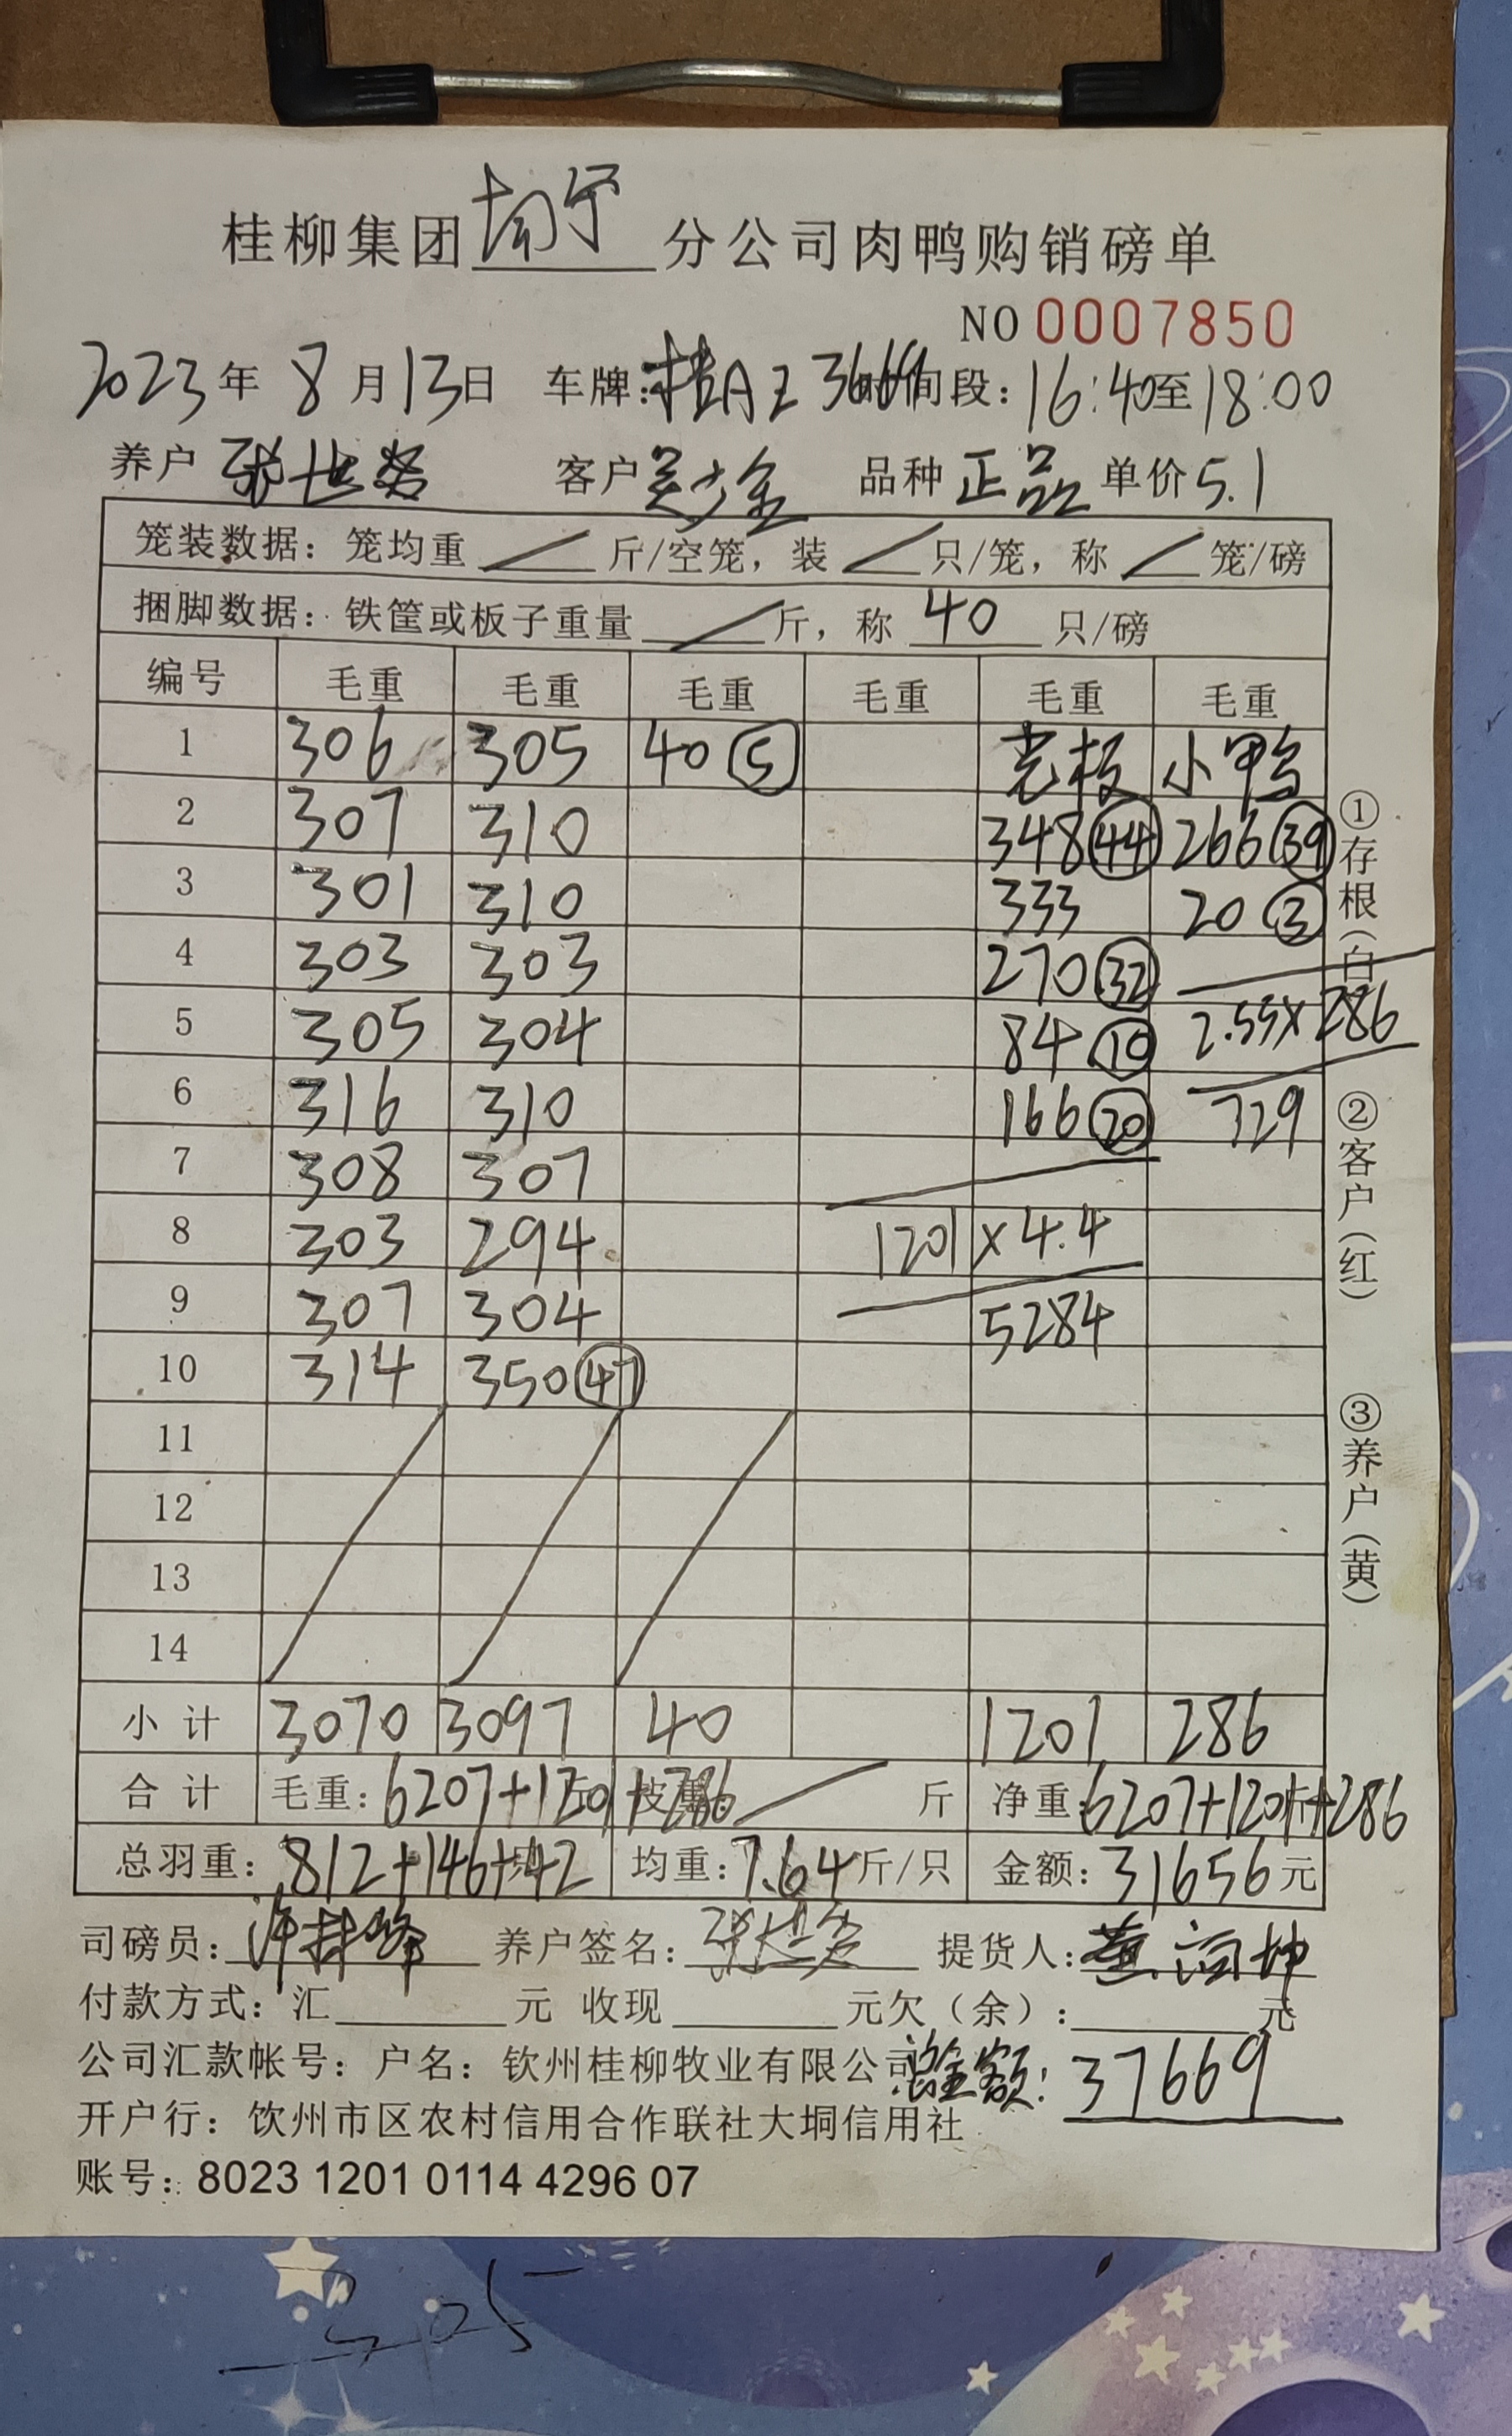 桂柳集团南宁分公司肉鸭购销磅单
NO 0007850
2023年 8月13日 车牌:桂AZ3669 时间段:16:40至18:00
养户 张世 客户 吴少金 品种 正品 单价5.1
笼装数据: 笼均重 / 斤/空笼, 装 / 只/笼, 称 / 笼/磅
捆脚数据: 铁筐或板子重量 / 斤, 称 40 只/磅
编号 毛重 毛重 毛重 毛重 毛重 毛重
1 306 305 40⑤ 老板 小鸭
2 307 310 348㊹ 266㊴
3 301 310 333 20③
4 303 303 270㉜
5 305 304 84⑩ 2.55×286
6 316 310 166⑳ 729
7 308 307
8 303 294 1201×4.4
9 307 304 5284
10 314 350㊼
11
12
13
14
小计 3070 3097 40 1201 286
合计 毛重:6207+1201+286 皮重: / 斤 净重:6207+1201+286
总羽重:812+146+42 均重:7.64斤/只 金额:31656元
司磅员: 养户签名: 提货人:黄
付款方式: 汇 元 收现 元欠(余): 元
公司汇款帐号: 户名: 钦州桂柳牧业有限公司 总金额:37669
开户行: 饮州市区农村信用合作联社大垌信用社
账号: 8023 1201 0114 4296 07
①存根(白)
②客户(红)
③养户(黄)